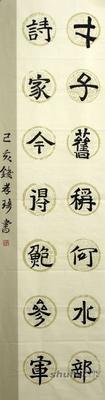 才子舊稱何水部
詩家今得鮑參軍
己亥錢君瑋書